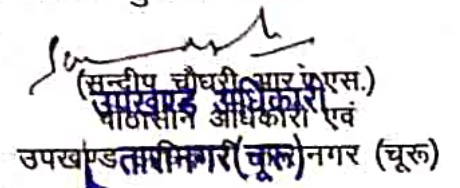 (सन्दीप चौधरी आर.ए.एस.)
उपखण्ड अधिकारी
पीठासीन अधिकारी एवं
उपखण्ड
तारानगर (चूरू)
नगर (चूरू)